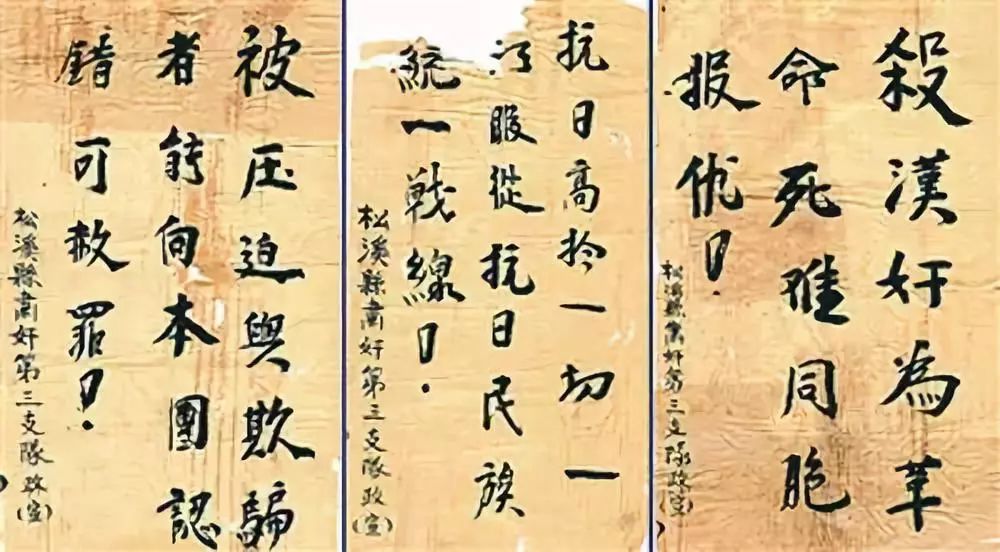 殺漢奸為革
命死难同胞
报仇！
松溪縣肅奸第三支隊政(宣)
抗日高扵一切一
切服從抗日民族
統一戦線！
松溪縣肅奸第三支隊政(宣)
被压迫與欺騙
者能向本團認
錯可赦罪！
松溪縣肅奸第三支隊政(宣)